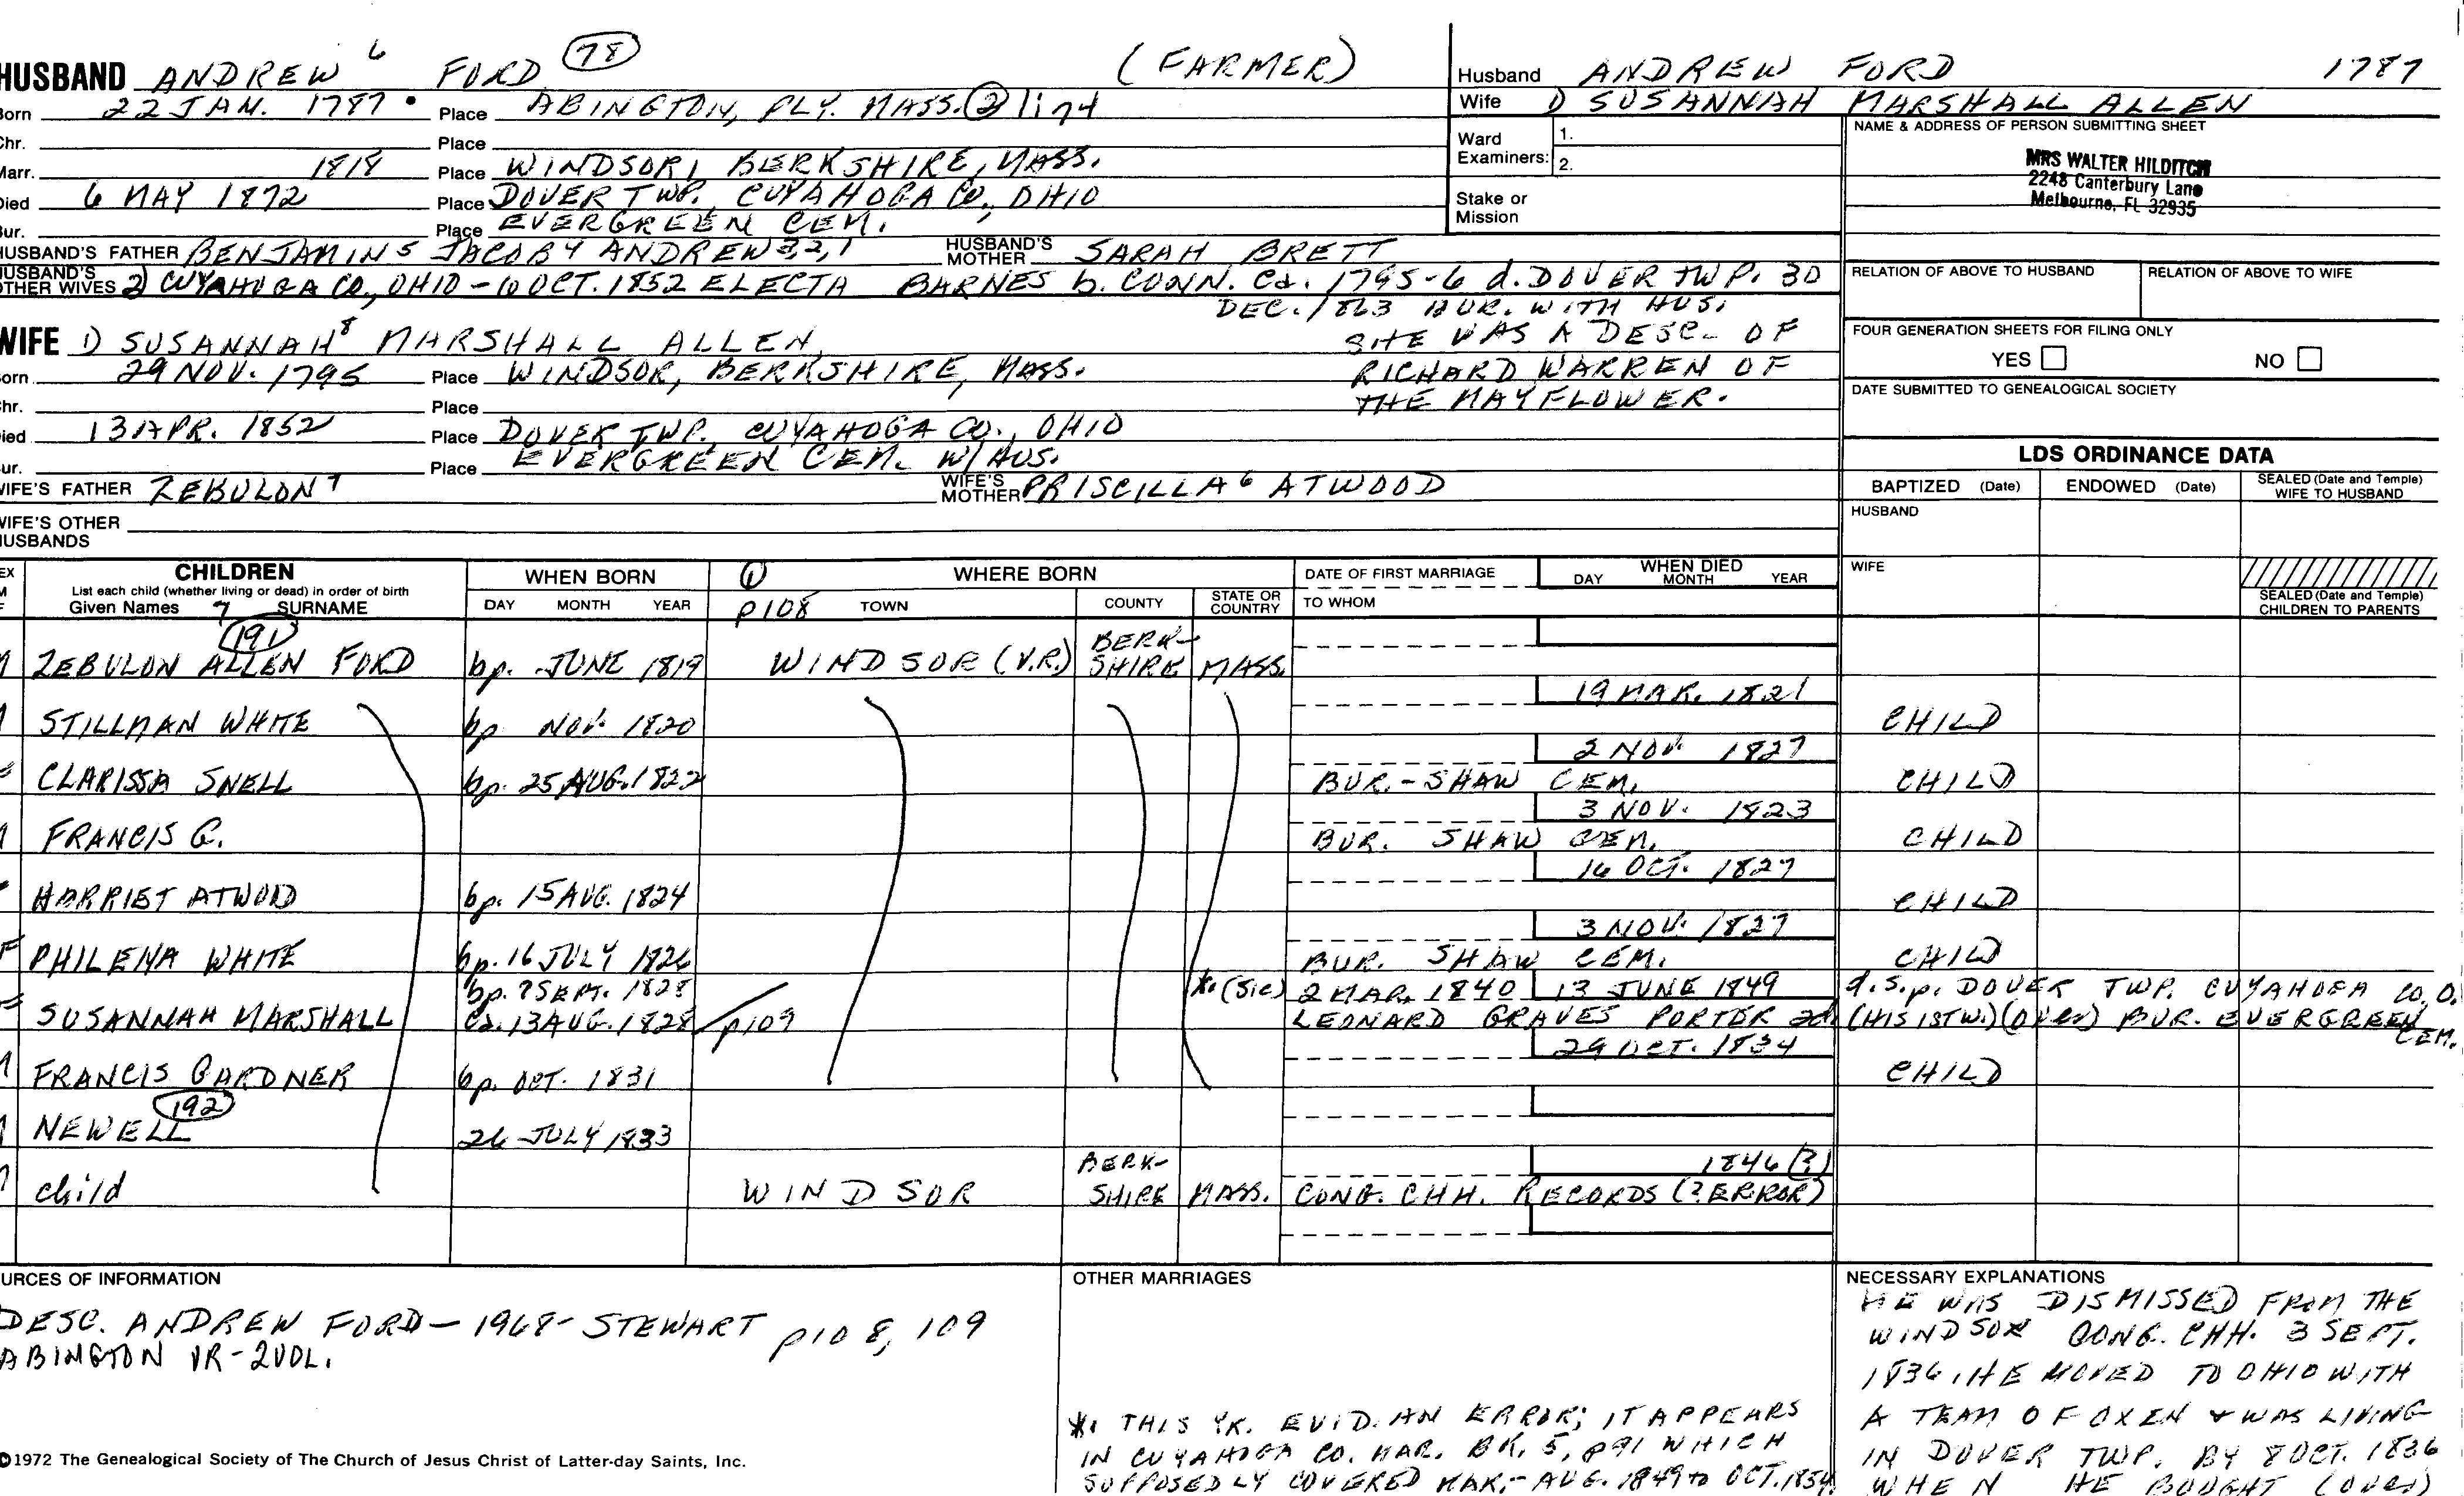 HUSBAND ANDREW 6 FORD (78) (FARMER)
Born 22 JAN. 1787 • Place ABINGTON, PLY. MASS. (2) 1:74
Chr. Place
Marr. 1818 Place WINDSOR, BERKSHIRE, MASS.
Died 6 MAY 1872 Place DOVER TWP. CUYAHOGA CO., OHIO
Bur. Place EVERGREEN CEM.
HUSBAND'S FATHER BENJAMIN 5 JACOB 4 ANDREW 3,2,1 HUSBAND'S MOTHER SARAH BRETT
HUSBAND'S OTHER WIVES 2) CUYAHOGA CO., OHIO - 10 OCT. 1852 ELECTA BARNES b. CONN. Ca. 1795-6 d. DOVER TWP. 30
DEC. 1863 BUR. WITH HUS.
WIFE 1) SUSANNAH 8 MARSHALL ALLEN
SHE WAS A DESC. OF
RICHARD WARREN OF
THE MAYFLOWER.
Born 29 NOV. 1795 Place WINDSOR, BERKSHIRE, MASS.
Chr. Place
Died 13 APR. 1852 Place DOVER TWP., CUYAHOGA CO., OHIO
Bur. Place EVERGREEN CEM. W/ HUS.
WIFE'S FATHER ZEBULON 7 WIFE'S MOTHER PRISCILLA 6 ATWOOD
WIFE'S OTHER HUSBANDS
Husband ANDREW FORD 1787
Wife 1) SUSANNAH MARSHALL ALLEN
Ward Examiners: 1.
2.
Stake or Mission
NAME & ADDRESS OF PERSON SUBMITTING SHEET
MRS WALTER HILDITCH
2248 Canterbury Lane
Melbourne, FL 32935
RELATION OF ABOVE TO HUSBAND RELATION OF ABOVE TO WIFE
FOUR GENERATION SHEETS FOR FILING ONLY
YES NO
DATE SUBMITTED TO GENEALOGICAL SOCIETY
LDS ORDINANCE DATA
BAPTIZED (Date) ENDOWED (Date) SEALED (Date and Temple) WIFE TO HUSBAND
HUSBAND
WIFE
SEALED (Date and Temple) CHILDREN TO PARENTS
SEX M F CHILDREN WHEN BORN (1) WHERE BORN DATE OF FIRST MARRIAGE WHEN DIED
List each child (whether living or dead) in order of birth
Given Names 7 SURNAME DAY MONTH YEAR p108 TOWN COUNTY STATE OR COUNTRY TO WHOM DAY MONTH YEAR
(191)
M ZEBULON ALLEN FORD bp. JUNE 1819 WINDSOR (V.R.) BERK-SHIRE MASS.
19 MAR. 1821
M STILLMAN WHITE bp NOV. 1820 CHILD
2 NOV. 1827
F CLARISSA SNELL bp. 25 AUG. 1822 BUR. - SHAW CEM. CHILD
3 NOV. 1823
M FRANCIS G. BUR. SHAW CEM. CHILD
16 OCT. 1827
F HARRIET ATWOOD bp. 15 AUG. 1824 CHILD
3 NOV. 1827
F PHILENA WHITE bp. 16 JULY 1826 BUR. SHAW CEM. CHILD
bp. 7 SEPT. 1828 *. (sic) 2 MAR. 1840 13 JUNE 1849 d.s.p. DOVER TWP. CUYAHOGA CO. O.
F SUSANNAH MARSHALL Ca. 13 AUG. 1828 p109 LEONARD GRAVES PORTER 2d. (HIS 1ST W.) (over) BUR. EVERGREEN CEM.
29 OCT. 1834
M FRANCIS GARDNER bp. OCT. 1831 CHILD
(192)
M NEWELL 26 JULY 1833
1846 (?)
M child WINDSOR BERK-SHIRE MASS. CONG. CHH. RECORDS (? ERROR)
SOURCES OF INFORMATION
DESC. ANDREW FORD - 1968 - STEWART p108, 109
ABINGTON VR - 2 VOL.
OTHER MARRIAGES
*. THIS YR. EVID. AN ERROR; IT APPEARS
IN CUYAHOGA CO. MAR. BK. 5, p91 WHICH
SUPPOSEDLY COVERED MAR. - AUG. 1849 to OCT. 1854.
NECESSARY EXPLANATIONS
HE WAS DISMISSED FROM THE
WINDSOR CONG. CHH. 3 SEPT.
1836. HE MOVED TO OHIO WITH
A TEAM OF OXEN & WAS LIVING
IN DOVER TWP. BY 8 OCT. 1836
WHEN HE BOUGHT (over)
©1972 The Genealogical Society of The Church of Jesus Christ of Latter-day Saints, Inc.